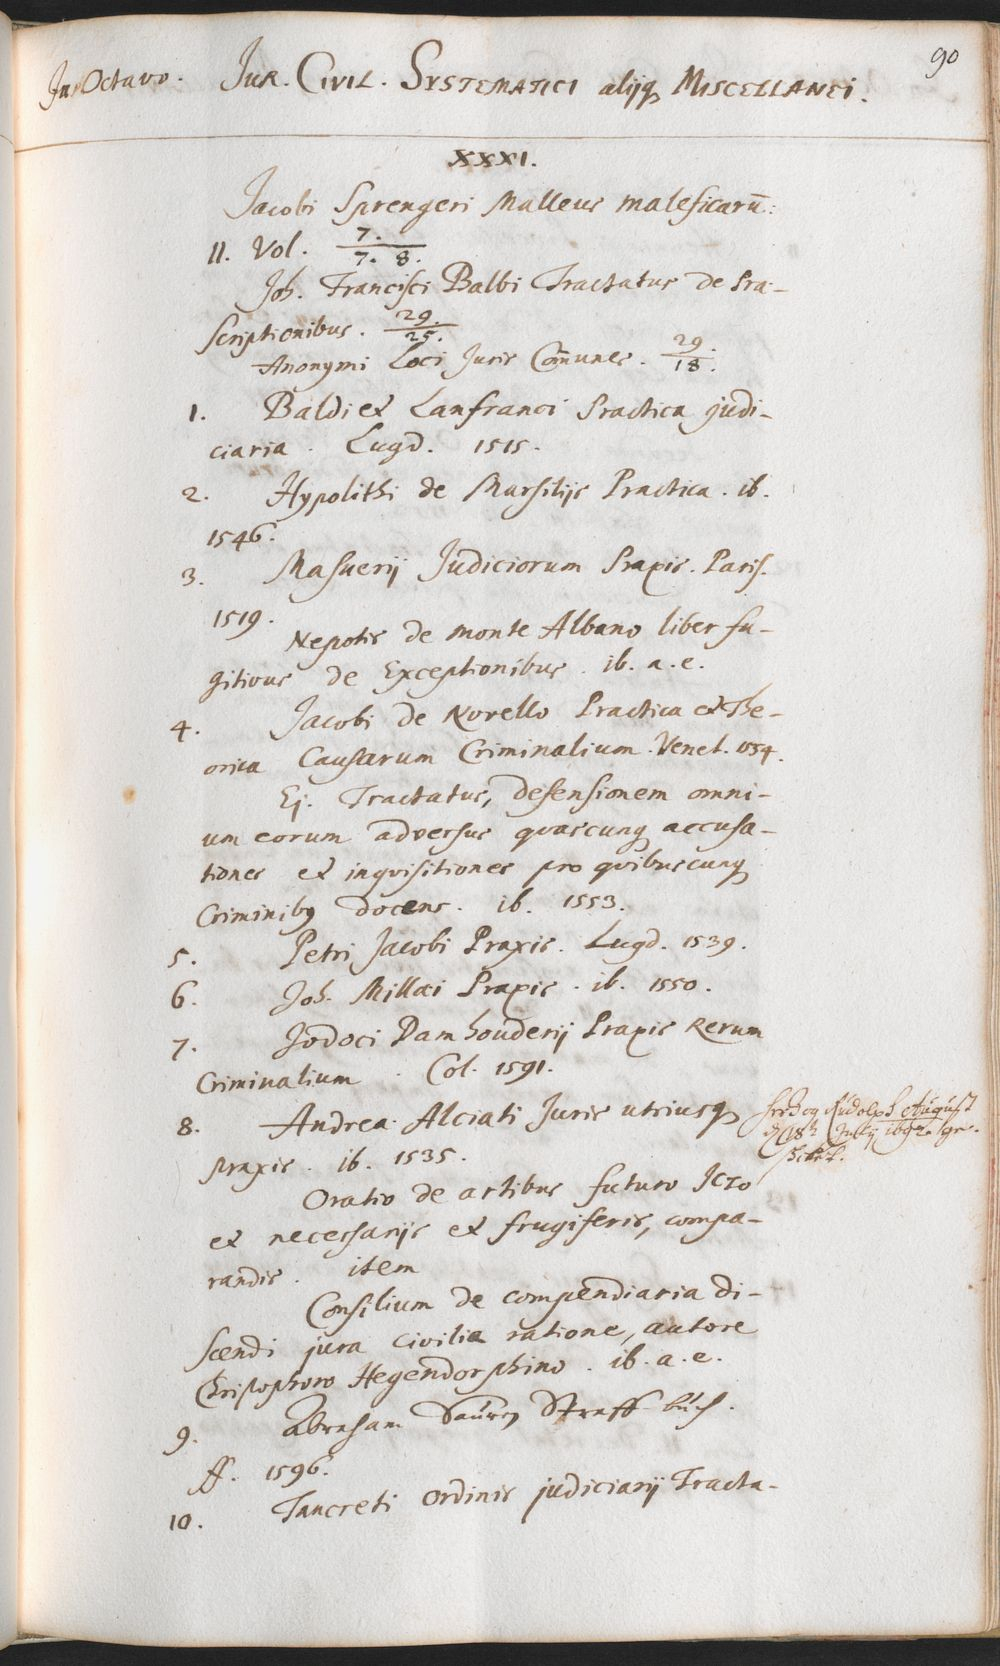 90
In Octavo. JUR. CIVIL. SYSTEMATICI alijq MISCELLANEI.
XXXI.
Jacobi Sprengeri Malleus maleficarū:
II. Vol. 7. / 7. 8.
Joh. Francisci Balbi Tractatus de Præ-
scriptionibus. 29. / 25.
Anonymi Loci Juris Com̄unes. 29. / 18.
1. Baldi et Lanfranci Practica judi-
ciaria. Lugd. 1515.
2. Hypolithi de Marsilijs Practica. ib.
1546.
3. Masuerij Judiciorum Praxis. Paris.
1519.
Nepotis de monte Albano liber fu-
gitivus de Exceptionibus. ib. a. e.
4. Jacobi de Novello Practica et The-
orica Causarum Criminalium. Venet. 1554.
Ej. Tractatus, defensionem omni-
um eorum adversus quascunq accusa-
tiones et inquisitiones pro quibuscunq
Criminibq docens. ib. 1553.
5. Petri Jacobi Praxis. Lugd. 1539.
6. Joh. Millæi Praxis. ib. 1550.
7. Jodoci Damhouderij Praxis Rerum
Criminalium. Col. 1591.
8. Andreæ Alciati Juris utriusq
praxis. ib. 1535.
Herzog Rudolph August
d. 18h Julij 1692. ge-
schickt.
Oratio de artibus futuro JCTo
et necessarijs et frugiferis, compa-
randis. item
Consilium de compendiaria di-
scendi jura civilia ratione, autore
Christophoro Hegendorphino. ib. a. e.
9. Abraham Saurn Straff-buch.
ff. 1596.
10. Tancreti Ordinis judiciarij Tracta-